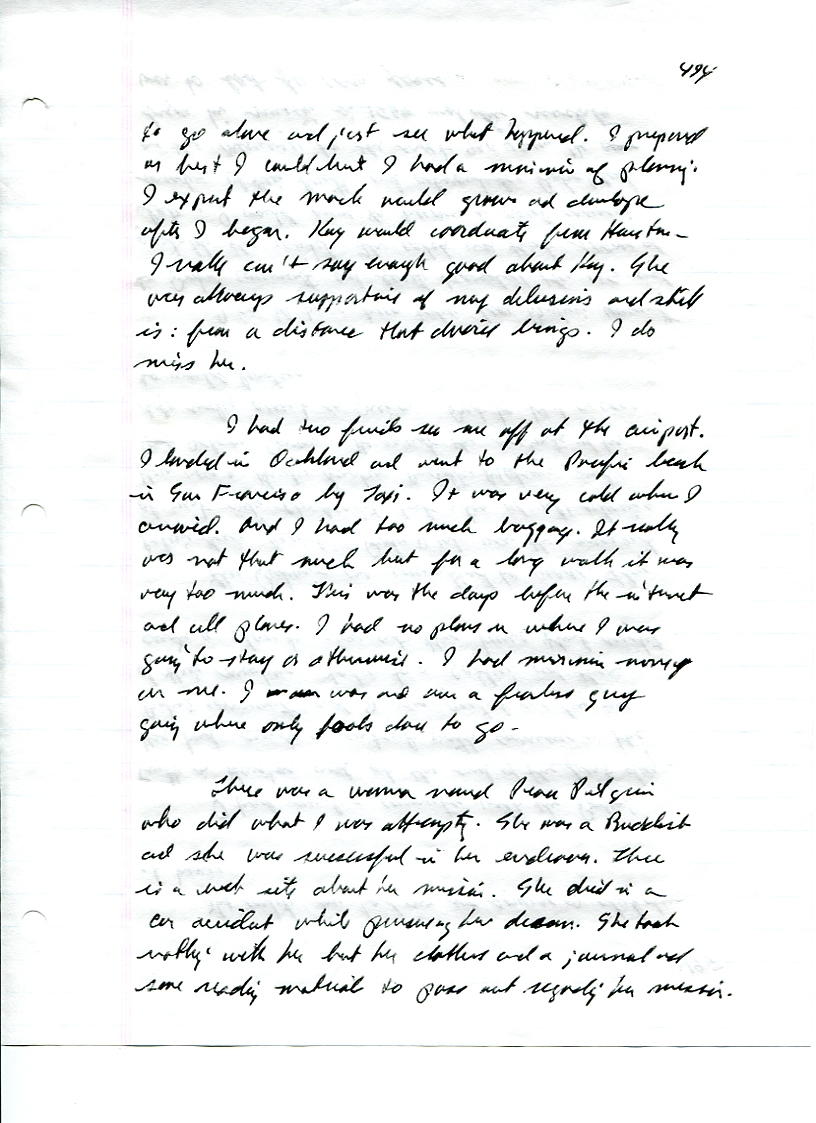 494
to go alone and just see what happened. I prepared
as best I could but I had a minimum of planning.
I expect the march would grow and develope
after I began. Kay would coordinate from Houston -
I really can't say enough good about Kay. She
was allways supportive of my delusions and still
is: from a distance that divorce brings. I do
miss her.
I had two friends see me off at the airport.
I landed in Oakland and went to the Pacific beach
in San Francisco by Taxi. It was very cold when I
arrived. And I had too much baggage. It really
was not that much but for a long walk it was
very too much. This was the days before the internet
and cell phones. I had no plans on where I was
going to stay or otherwise. I had minimum money
on me. I was and am a fearless guy
going where only fools dare to go -
There was a woman named Peace Pilgrim
who did what I was attempting. She was a Buddhist
and she was successful in her endeavor. There
is a web site about her mission. She died in a
car accident while pursuing her dream. She took
nothing with her but her clothes and a journal and
some reading material to pass out regarding her mission.